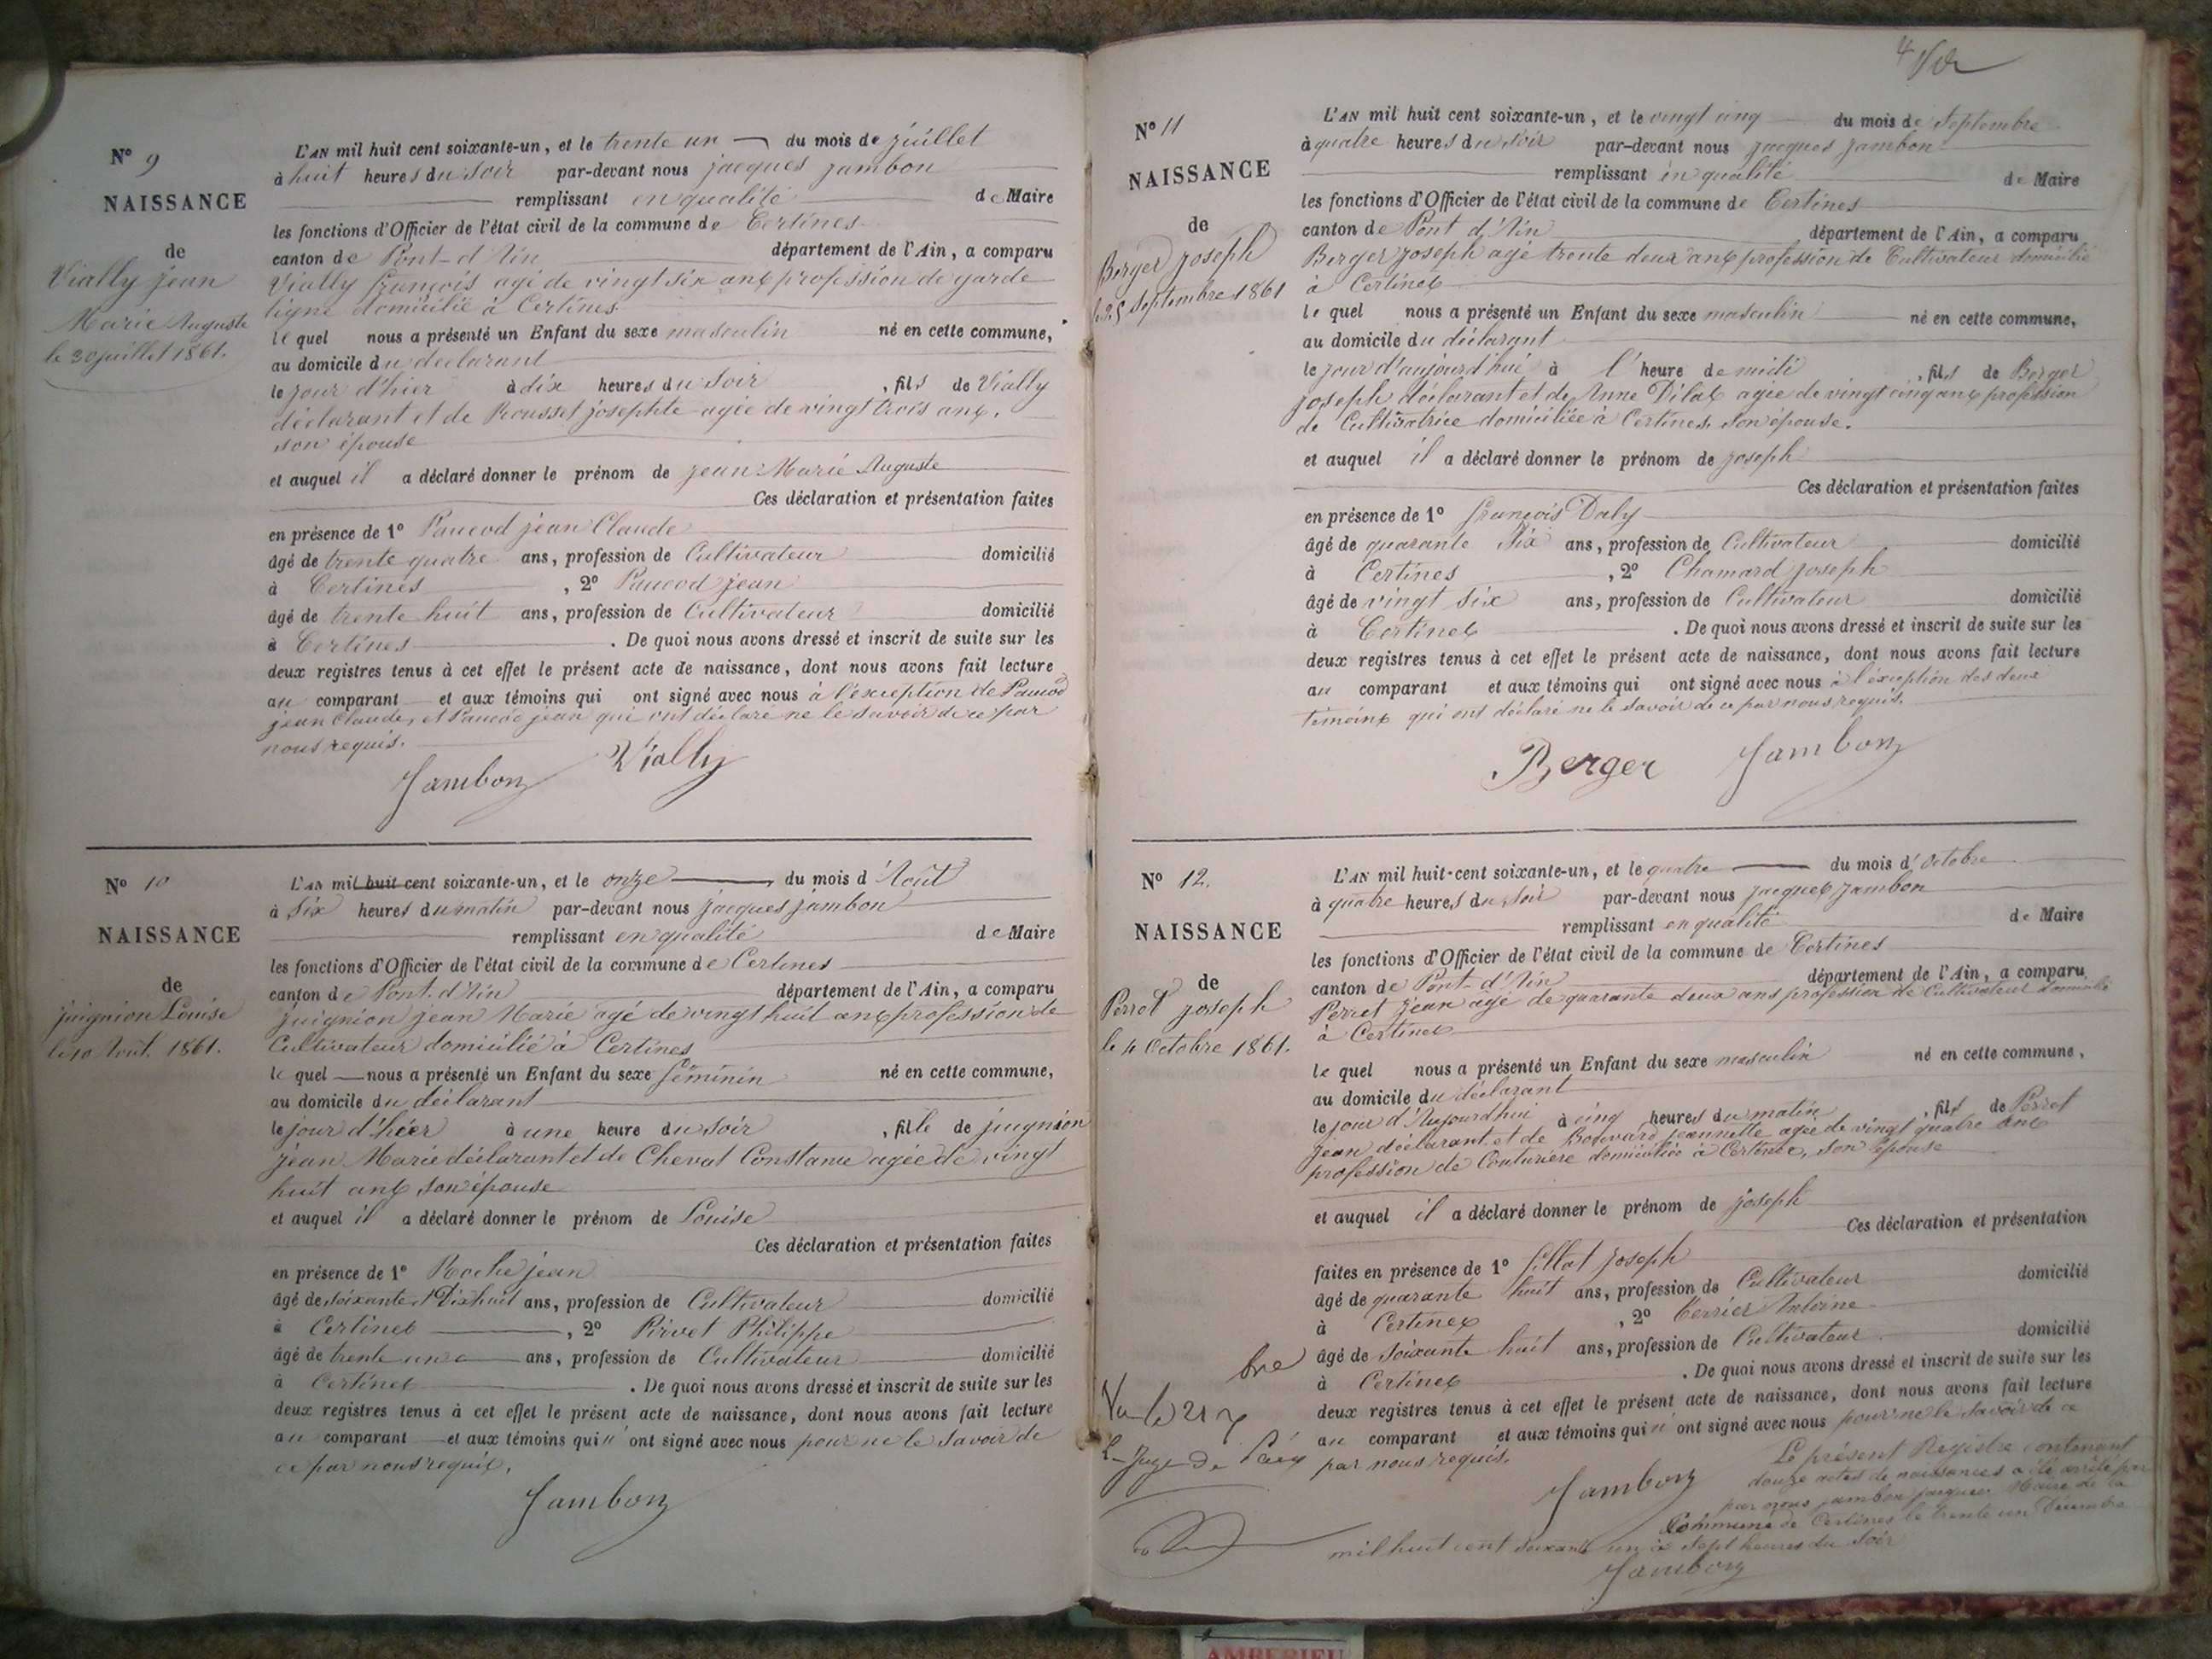 N° 9
NAISSANCE
de
Vially jean
Marie Auguste
le 30 juillet 1861.
L'AN mil huit cent soixante-un, et le trente un du mois de juillet
à huit heures du soir par-devant nous jacques jambon
remplissant en qualité de Maire
les fonctions d'Officier de l'état civil de la commune de Certines
canton de Pont-d'Ain département de l'Ain, a comparu
Vially françois agé de vingt six ans profession de garde
ligne domicilié à Certines
lequel nous a présenté un Enfant du sexe masculin né en cette commune,
au domicile du déclarant
le jour d'hier à dix heures du soir, fils de Vially
déclarant et de Rousset josephte agée de vingt trois ans,
son épouse
et auquel il a déclaré donner le prénom de jean Marie Auguste
Ces déclaration et présentation faites
en présence de 1° Paucod jean Claude
âgé de trente quatre ans, profession de Cultivateur domicilié
à Certines, 2° Paucod jean
âgé de trente huit ans, profession de Cultivateur domicilié
à Certines. De quoi nous avons dressé et inscrit de suite sur les
deux registres tenus à cet effet le présent acte de naissance, dont nous avons fait lecture
au comparant et aux témoins qui ont signé avec nous à l'exception de Paucod
jean Claude, et Paucod jean qui ont déclaré ne le savoir de ce par
nous requis.
Jambon Vially
N° 10
NAISSANCE
de
juignion Louise
le 10 Août 1861.
L'AN mil huit cent soixante-un, et le onze du mois d'Août
à six heures du matin par-devant nous jacques jambon
remplissant en qualité de Maire
les fonctions d'Officier de l'état civil de la commune de Certines
canton de Pont-d'Ain département de l'Ain, a comparu
juignion jean Marie agé de vingt huit ans profession de
Cultivateur domicilié à Certines
lequel nous a présenté un Enfant du sexe féminin né en cette commune,
au domicile du déclarant
le jour d'hier à une heure du soir, fille de juignion
jean Marie déclarant et de Chevat Constance agée de vingt
huit ans son épouse
et auquel il a déclaré donner le prénom de Louise
Ces déclaration et présentation faites
en présence de 1° Roche jean
âgé de soixante et Dix huit ans, profession de Cultivateur domicilié
à Certines, 2° Pirvet Philippe
âgé de trente un ans, profession de Cultivateur domicilié
à Certines. De quoi nous avons dressé et inscrit de suite sur les
deux registres tenus à cet effet le présent acte de naissance, dont nous avons fait lecture
au comparant et aux témoins qui n'ont signé avec nous pour ne le savoir de
ce par nous requis.
Jambon
4
N° 11
NAISSANCE
de
Berger joseph
le 25 Septembre 1861
L'AN mil huit cent soixante-un, et le vingt cinq du mois de Septembre
à quatre heures du soir par-devant nous jacques jambon
remplissant en qualité de Maire
les fonctions d'Officier de l'état civil de la commune de Certines
canton de Pont d'Ain département de l'Ain, a comparu
Berger joseph agé trente deux ans profession de Cultivateur domicilié
à Certines
lequel nous a présenté un Enfant du sexe masculin né en cette commune,
au domicile du déclarant
le jour d'aujourd'hui à l'heure de midi, fils de Berger
joseph déclarant et de Anne Dilas agée de vingt cinq ans profession
de Cultivatrice domiciliée à Certines, son épouse.
et auquel il a déclaré donner le prénom de joseph
Ces déclaration et présentation faites
en présence de 1° françois Daly
âgé de quarante six ans, profession de Cultivateur domicilié
à Certines, 2° Chamard joseph
âgé de vingt six ans, profession de Cultivateur domicilié
à Certines. De quoi nous avons dressé et inscrit de suite sur les
deux registres tenus à cet effet le présent acte de naissance, dont nous avons fait lecture
au comparant et aux témoins qui ont signé avec nous à l'éxception des deux
témoins qui ont déclaré ne le savoir de ce par nous requis.
Berger Jambon
N° 12.
NAISSANCE
de
Perret joseph
le 4 Octobre 1861.
L'AN mil huit-cent soixante-un, et le quatre du mois d'Octobre
à quatre heures du soir par-devant nous jacques jambon
remplissant en qualité de Maire
les fonctions d'Officier de l'état civil de la commune de Certines
canton de Pont-d'Ain département de l'Ain, a comparu
Perret jean agé de quarante deux ans profession de Cultivateur domicilié
à Certines
lequel nous a présenté un Enfant du sexe masculin né en cette commune,
au domicile du déclarant
le jour d'Aujourdhui à cinq heures du matin, fils de Perret
jean déclarant et de Bouvard jeannette agée de vingt quatre ans
profession de Couturiere domiciliée à Certines, son épouse
et auquel il a déclaré donner le prénom de joseph
Ces déclaration et présentation
faites en présence de 1° fillat joseph
âgé de quarante huit ans, profession de Cultivateur domicilié
à Certines, 2° Terrier Antoine
âgé de soixante huit ans, profession de Cultivateur domicilié
à Certines. De quoi nous avons dressé et inscrit de suite sur les
deux registres tenus à cet effet le présent acte de naissance, dont nous avons fait lecture
au comparant et aux témoins qui n'ont signé avec nous pour ne le savoir de ce
par nous requis.
Jambon
Le présent Registre contenant
douze actes de naissances a été arrêté par
par nous jambon jacques Maire de la
Commune de Certines le trente un Décembre
mil huit cent soixante un à sept heures du soir
Jambon
bre
Vu le 21
Juge de Paix
AMBERIEU